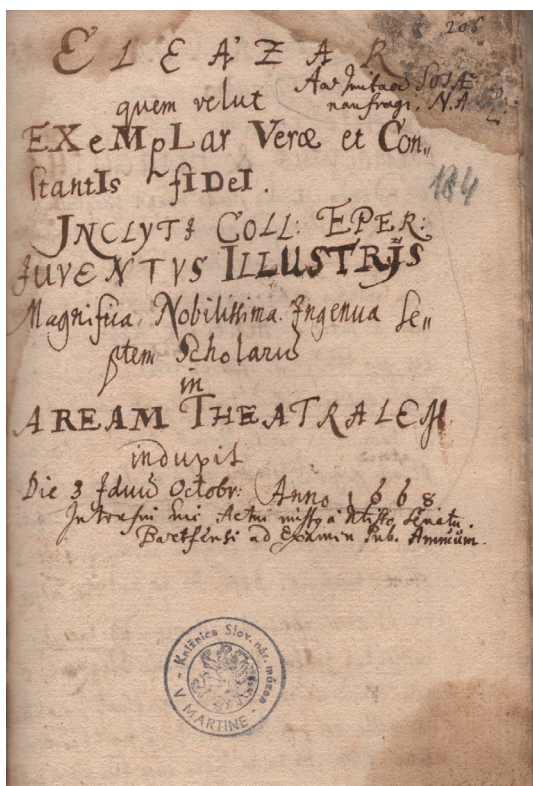 206
ELEAZAR
Ad Imitaōē JOSÆ
naufragi, N. A
quem velut
EXeMpLar Veræ et Con„
stantIs fIDeI.
184
INCLYTI COLL: EPER:
IUVENTVS ILLUSTRIS
Magnifica, Nobilissima, Ingenua Se„
ptem Scholarū
in
AREAM THEATRALEM
induxit
Die 3 Iduū Octobr: Anno 1668
Interfui huic Actui missus à Senatu
Bartfensi ad Examen Pub.
Knižnica Slov. nár. múzea
V MARTINE